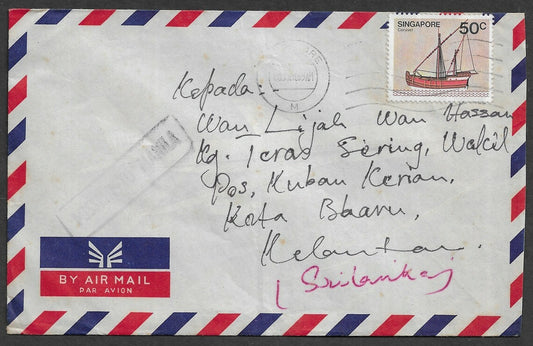 SINGAPORE 50c
Coaster
Kepada:-
Wan Lijah Wan Hassan
Kg. Teras Sering, Wakil
Pos, Kuban Kerian,
Kota Bharu,
Kelantan.
(Srilanka)
BY AIR MAIL
PAR AVION